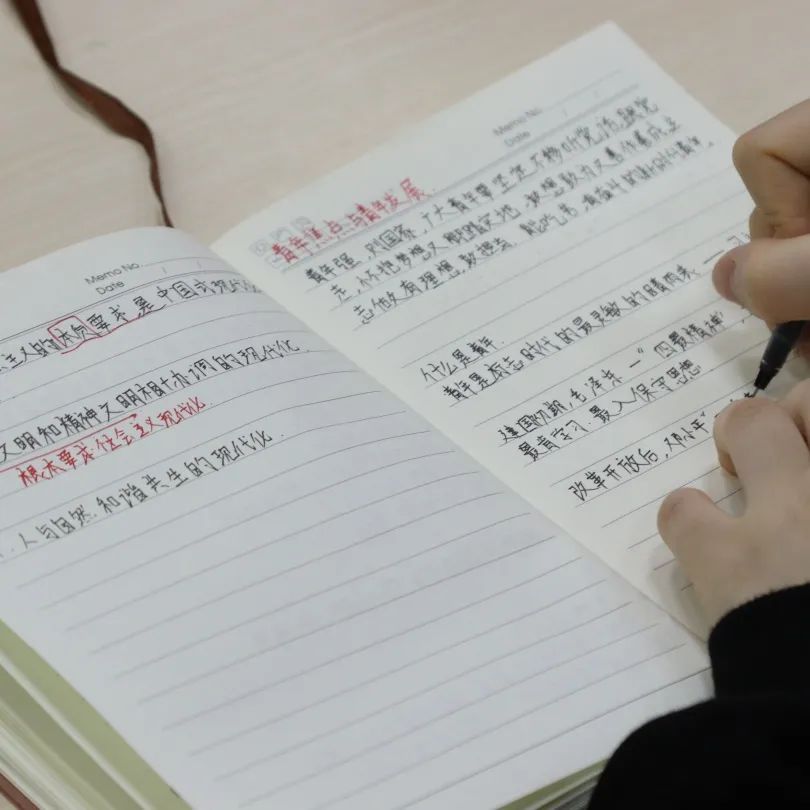 Memo No.
Date / /
主义的本质要求是中国式现代化
文明和精神文明相协调的现代化.
根本要求:社会主义现代化
人与自然和谐共生的现代化.
Memo No.
Date / /
青年焦点与青年发展.
青年强,则国家,广大青年要坚定不移听党话,跟党
走,怀抱梦想又脚踏实地,敢想敢为又善作善成,立
志做有理想,敢担当,能吃苦,肯奋斗的新时代青年.
什么是青年.
青年是标志时代的最灵敏的晴雨表 ——
建国初期,毛泽东 —“四最精神”,
最肯学习,最入保守思想
改革开放后,邓小平“